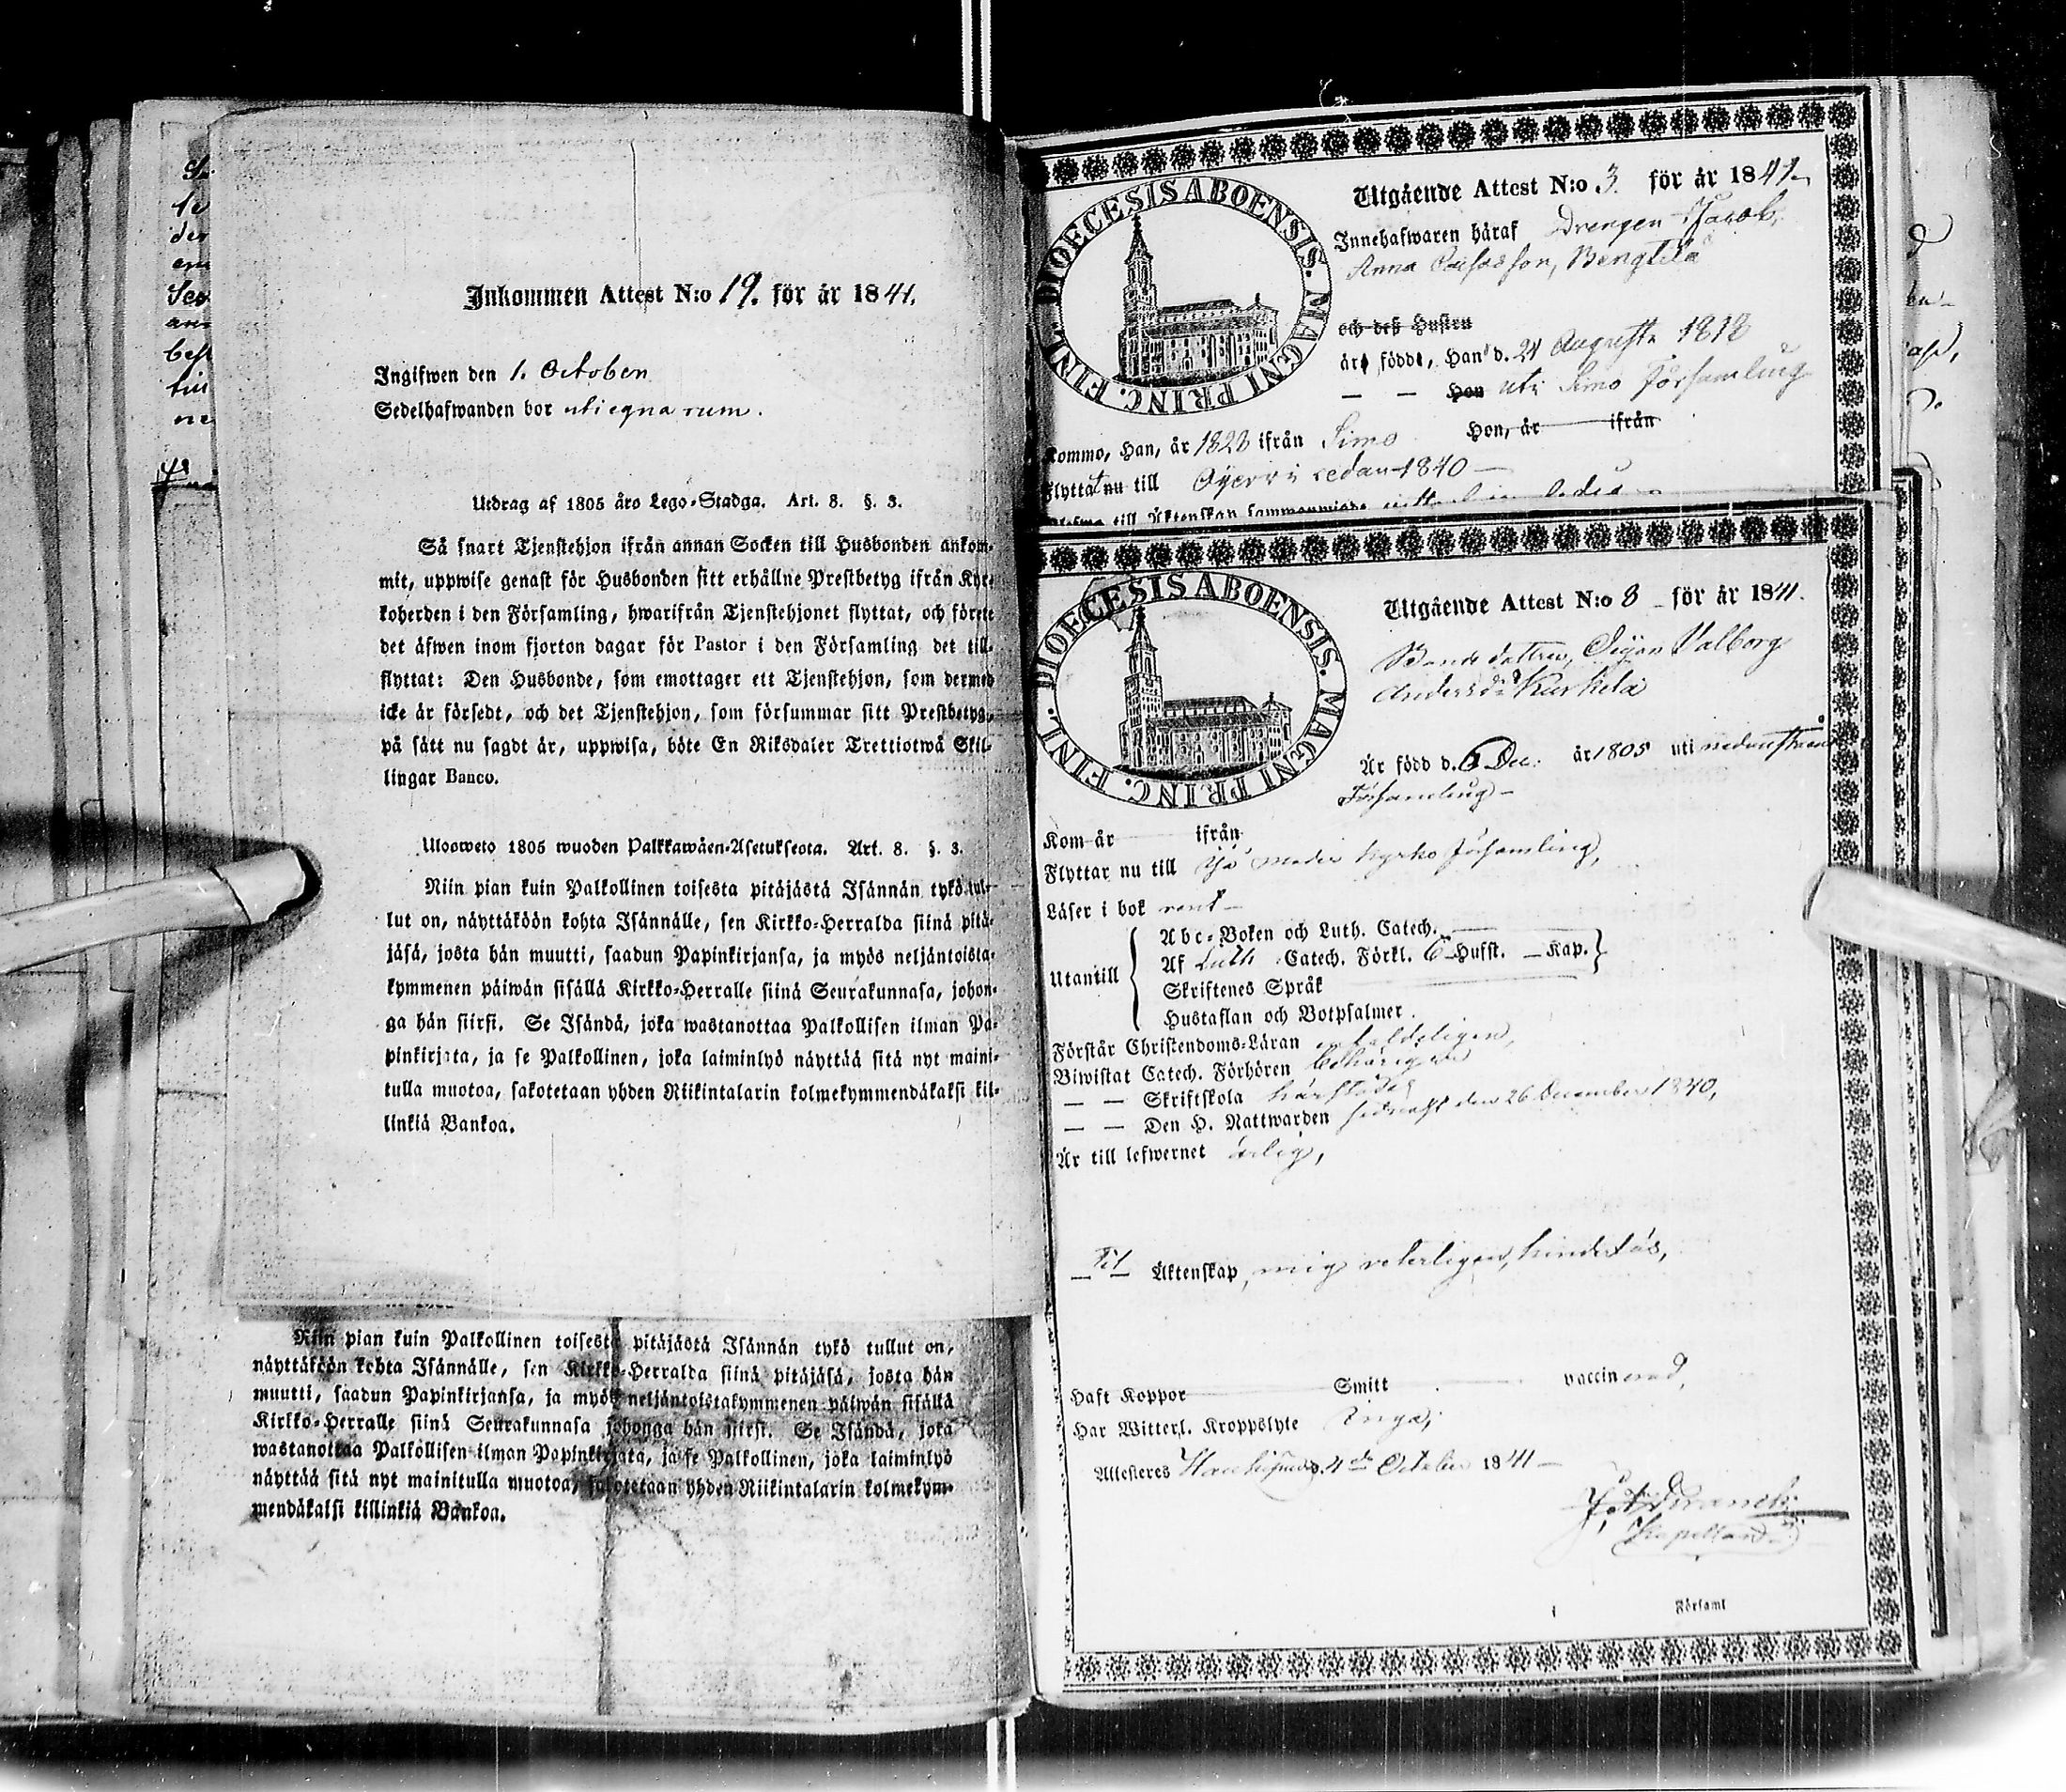 Inkommen Attest N:o 19. för år 1841.
Ingifwen den 1. October
Sedelhafwanden bor uti egna rum.
Utdrag af 1805 års Lego-Stadga. Art. 8. §. 3.
Så snart Tjenstehjon ifrån annan Socken till Husbonden ankom-
mit, uppwise genast för Husbonden sitt erhållne Prestbetyg ifrån Kyr-
koherden i den Församling, hwarifrån Tjenstehjonet flyttat, och förete
det äfwen inom fjorton dagar för Pastor i den Församling det till-
flyttat: Den Husbonde, som emottager ett Tjenstehjon, som dermed
icke är försedt, och det Tjenstehjon, som försummar sitt Prestbetyg,
på sätt nu sagdt är, uppwisa, böte En Riksdaler Trettiotwå Skil-
lingar Banco.
Ulosweto 1805 wuoden Palkkawäen-Asetuksesta. Art. 8. §. 3.
Niin pian kuin Palkollinen toisesta pitäjästä Isännän tykö tul-
lut on, näyttäköön kohta Isännälle, sen Kirkko-Herralda siinä pitä-
jäsä, josta hän muutti, saadun Papinkirjansa, ja myös neljäntoista-
kymmenen päiwän sisällä Kirkko-Herralle siinä Seurakunnasa, johon-
ga hän siirsi. Se Isändä, joka wastanottaa Palkollisen ilman Pa-
pinkirjata, ja se Palkollinen, joka laiminlyö näyttää sitä nyt maini-
tulla muotoa, sakotetaan yhden Riikintalarin kolmekymmendäkaksi kil-
linkiä Bankoa.
Niin pian kuin Palkollinen toisesta pitäjästä Isännän tykö tullut on,
näyttäköön kohta Isännälle, sen Kirkko-Herralda siinä pitäjäsä, josta hän
muutti, saadun Papinkirjansa, ja myös neljäntoistakymmenen päiwän sisällä
Kirkko-Herralle siinä Seurakunnasa johonga hän siirsi. Se Isändä, joka
wastanottaa Palkollisen ilman Papinkirjata, ja se Palkollinen, joka laiminlyö
näyttää sitä nyt mainitulla muotoa, sakotetaan yhden Riikintalarin kolmekym-
mendäkaksi killinkiä Bankoa.
DIOECESIS ABOENSIS. MAGNI PRINC. FINL.
Utgående Attest N:o 3. för år 1841
Innehafwaren häraf Drengen Jacob
Anna , Bengtila
och deß Hustru
äro födde, Han d. 21 Augusti 1818
— — Hon uti Simo Församling
Kommo, Han, år 1828 ifrån Simo Hon, år ifrån
Flyttat nu till sedan 1840 —
till Äktenskap
DIOECESIS ABOENSIS. MAGNI PRINC. FINL.
Utgående Attest N:o 8 för år 1841.
Bonde dottren, Pigan Valborg
Andersdr Kurkela
Är född d. 6 Dec. år 1805 uti
Församling —
Kom år ifrån
Flyttar nu till moder kyrko församling,
Läser i bok rent —
Utantill
Abc-Boken och Luth. Catech.
Af Luth Catech. Förkl. 6 Hufst. — Kap.
Skriftenes Språk
Hustaflan och Botpsalmer.
Förstår Christendoms-Läran enfaldeligen,
Biwistat Catech. Förhören behörigen
— — Skriftskola härstädes
— — Den H. Nattwarden sednast den 26 December 1840,
Är till lefwernet ärlig,
— Til — Äktenskap, mig veterligen, hinderlös,
Haft Koppor Smitt vaccinerad,
Har Witterl. Kroppslyte Inga,
Attesteras d. 4de October 1841 —
Kapellan
i Församl